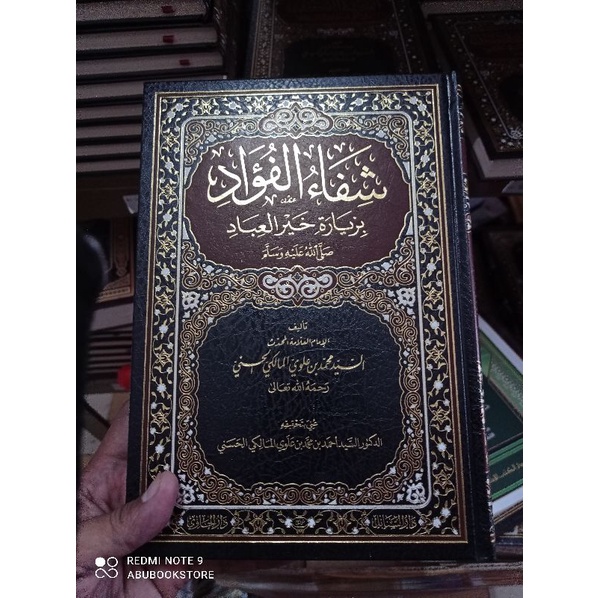 شفاء الفؤاد
بزيارة خير العباد
صلى الله عليه وسلم
تأليف
الإمام العلامة المحدث
السيد محمد بن علوي المالكي الحسني
رحمه الله تعالى
عني بتحقيقه
الدكتور السيد أحمد بن محمد بن علوي المالكي الحسني
REDMI NOTE 9
ABUBOOKSTORE